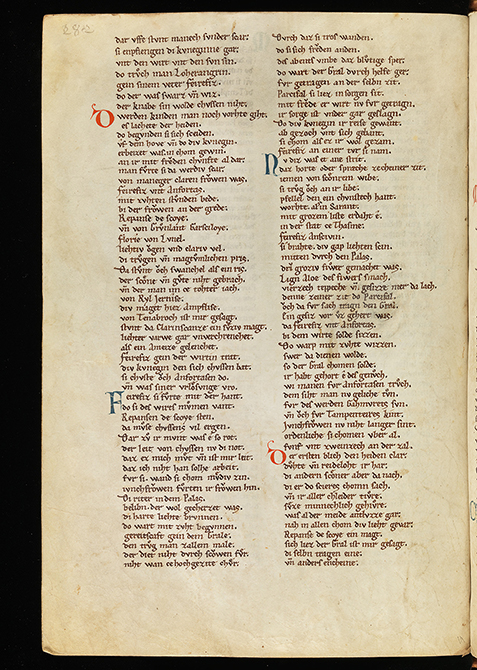 282
daz vffe stvnt manech svnder scar.
si enpfiengen di kvneginne gar.
vnt den wirt vnt den svn sin.
do trvch man Loherangrin.
gein sinem veter feirefiz.
do der was swarz vn wiz.
der knabe sin wolde chvssen niht.
werden kinden man noch vorhte giht.
es lachete der heiden.
do begvnden si sich sceiden.
vf dem hove vn do div kvnegin.
erbeizet was. in chom gewin.
an ir mit frevden chvnfte al dar.
man fvrte si da werdiv scar.
von maneger claren frowen was.
feirefiz vnt Anfortas.
mit zvhten stvnden bede.
bi der frowen an der grede.
Repanse de scoye.
vn von Grvnlant Garsciloye.
florie von Lvnel.
liehtiv ogen vnd clariv vel.
di trvgen vn magetvmlichen pris.
Da stvnt och swanchel als ein ris.
der scone vn gvte niht gebrach.
vn der man im ce tohter iach.
von Ryl Jernise.
div maget hiez Ampflise.
von Tenabroch ist mir gesagt.
stvnt da Clarischanze ein svziv magt.
liehter varwe gar vnverchrenchet.
als ein Ameize gelenchet.
Feirefiz gein der wirtin trat.
div kvnegin den sich chvssen bat.
si chvste och Anfortasen do.
vn was siner vrlosvnge vro.
Feirefiz si fvrte mit der hant.
do si des wirtes mvmen vant.
Repansen de scoye sten.
da mvse chvssens vil ergen.
Dar zv ir mvnt was e so rot.
der leit von chvssen nv di not.
daz ez mich mvt vn ist mir leit.
daz ich niht han solhe arbeit.
fvr si. wand si chom mvdiv zin.
ivnchfrowen fvrten ir frowen hin.
Di riter in dem Palas.
beliben. der wol gecherzet was.
di harte liehte brvnnen.
do wart mit zvht begvnnen.
gereitscaft gein dem Grale.
den trvg man zallem male.
der diet niht dvrch scowen fvr.
niht wan ce hochgezit chvr.
Dvrch daz si trost wanden.
do si sich frevden anden.
des abents vmbe daz blvtige sper.
do wart der Gral dvrch helfe ger.
fvr getragen an der selbn zit.
Parcifal si liez in sorgen sit.
mit frevde er wirt nv fvr getragn.
ir sorge ist vnder gar geslagn.
Do div kvnegin ir reise gewant.
ab gezoch vnt sich gebant.
si chom als ez ir wol gezam.
feirefiz an einer tvr si nam.
Nv diz was et ane strit.
daz horte oder spræche zecheiner zit.
iemen von sconrem wibe.
si trvg och an ir libe.
pfellel den ein chvnstech hant.
worhte. als in Sarant.
mit grozem liste erdaht e.
in der stat ce Thasme.
feirefiz Anscivin.
si brahte. div gap liehten scin.
mitten dvrch den Palas.
driv groziv fiwer gemachet was.
Lign Aloe des fiwers smach.
vierzech teppeche vn gesitze mer da lach.
denne zeiner zit do Parcifal.
och da fvr sach tragn den Gral.
Ein gesiz vor vz geheret was.
da feirefiz vnt Anfortas.
bi dem wirte solde sizzen.
Do warp mit zvhte wizzen.
swer da dienen wolde.
so der Gral chomen solde.
ir habt gehort e des genvch.
wi manen fvr Anfortasen trvch.
dem siht man nv geliche tvn.
fvr des werden Gahmvrets svn.
vn och fvr Tampenteires kint.
Jvnchfrowen nv niht langer sint.
ordenliche si chomen vber al.
fvnf vnt zweinzech an der zal.
Der ersten blich den heiden clar.
dvhte vn reideloht ir har.
di andern sconer aber da nach.
di er do scieres chomn sach.
vn ir aller chleider tivre.
svze minnechlich gehivre.
was al der meide antlvzze gar.
nah in allen chom div lieht gevar.
Repanse de scoye ein magt.
sich liez der Gral ist mir gesagt.
di selbn tragen eine.
vn anders encheine.